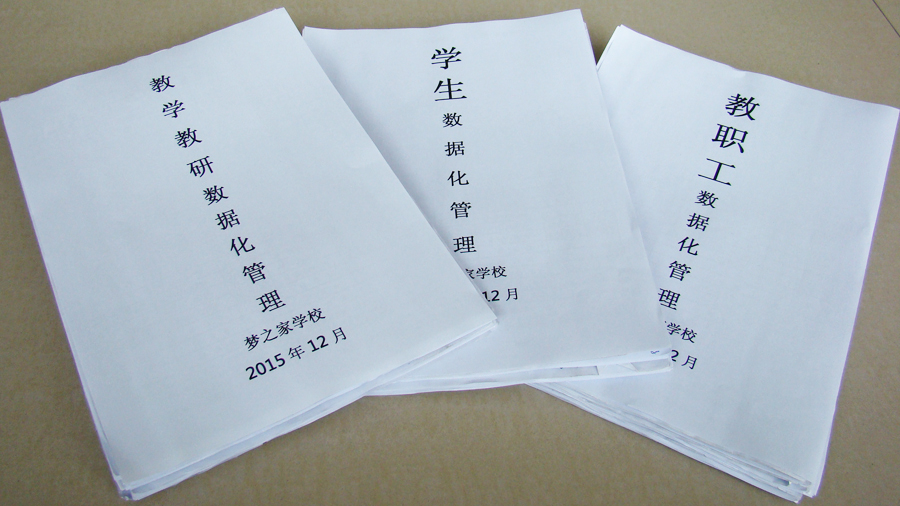 教学教研数据化管理
梦之家学校
2015年12月
学生数据化管理
家学校
12月
教职工数据化管理
学校
2月